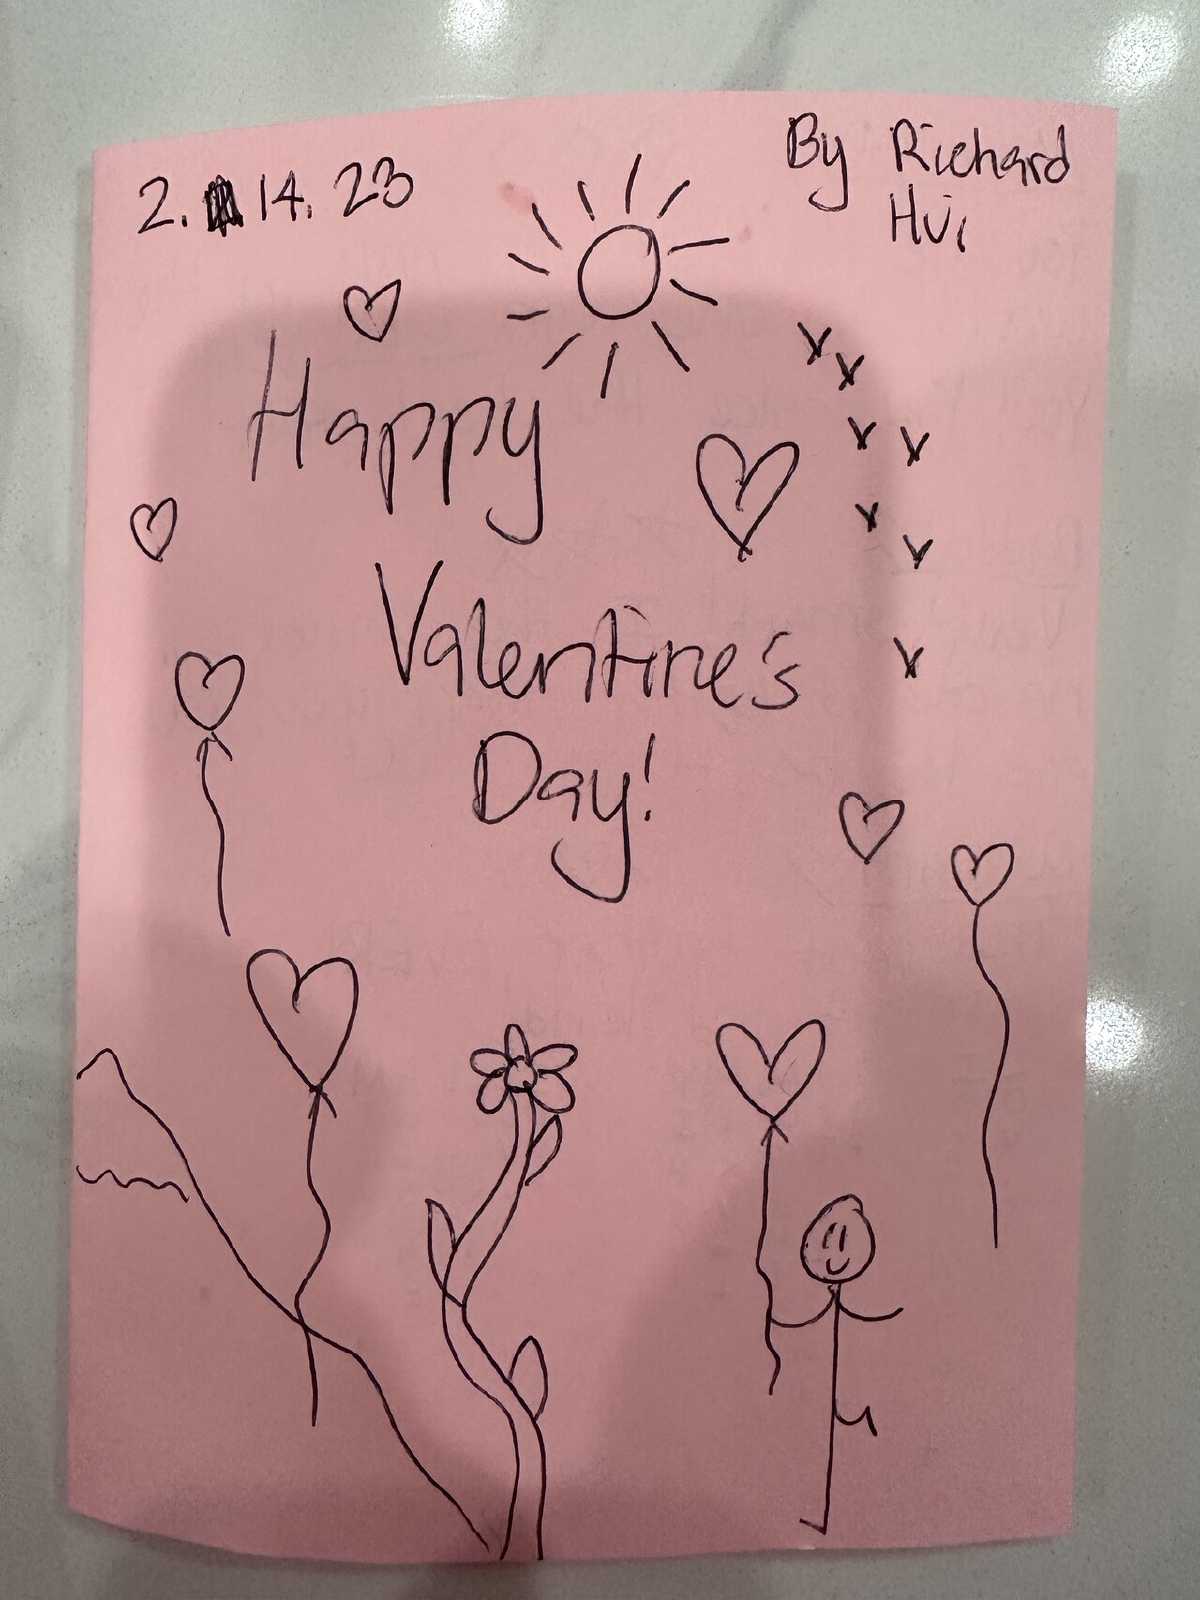 2. 14. 23
By Richard
Hui
Happy
Valentine's
Day!